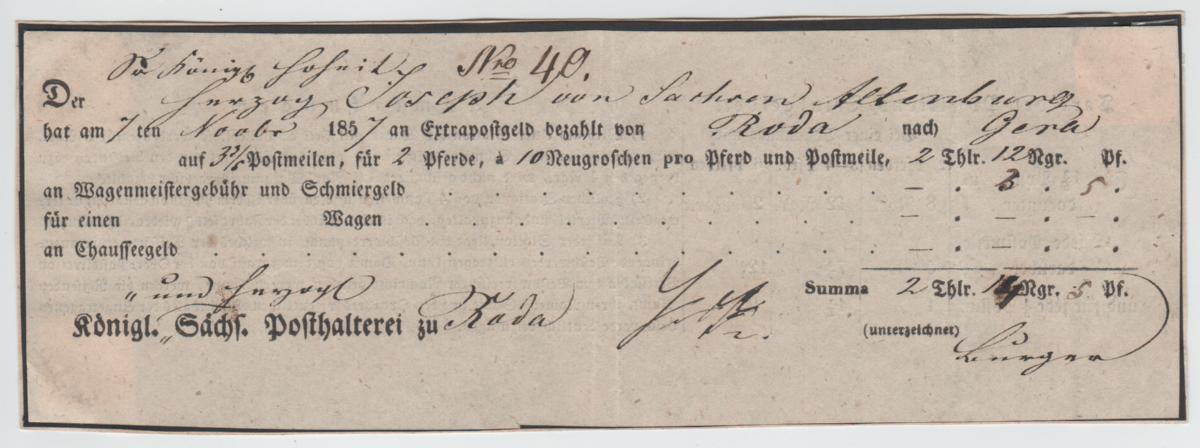 Sr Königl Hoheit Nro 40.
Der Herzog Joseph von Sachsen Altenburg
hat am 7 ten Novbr 1857 an Extrapostgeld bezahlt von Roda nach Gera
auf Postmeilen, für 2 Pferde, à 10 Neugroschen pro Pferd und Postmeile, 2 Thlr. 12 Ngr. Pf.
an Wagenmeistergebühr und Schmiergeld . . . . — . 3 . 5 .
für einen Wagen . . . . — . — . — .
an Chausseegeld . . . . — . . .
Summa 2 Thlr. Ngr. 5 Pf.
„und Herzogl
Königl. „Sächs. Posthalterei zu Roda
(unterzeichnet)
Burger